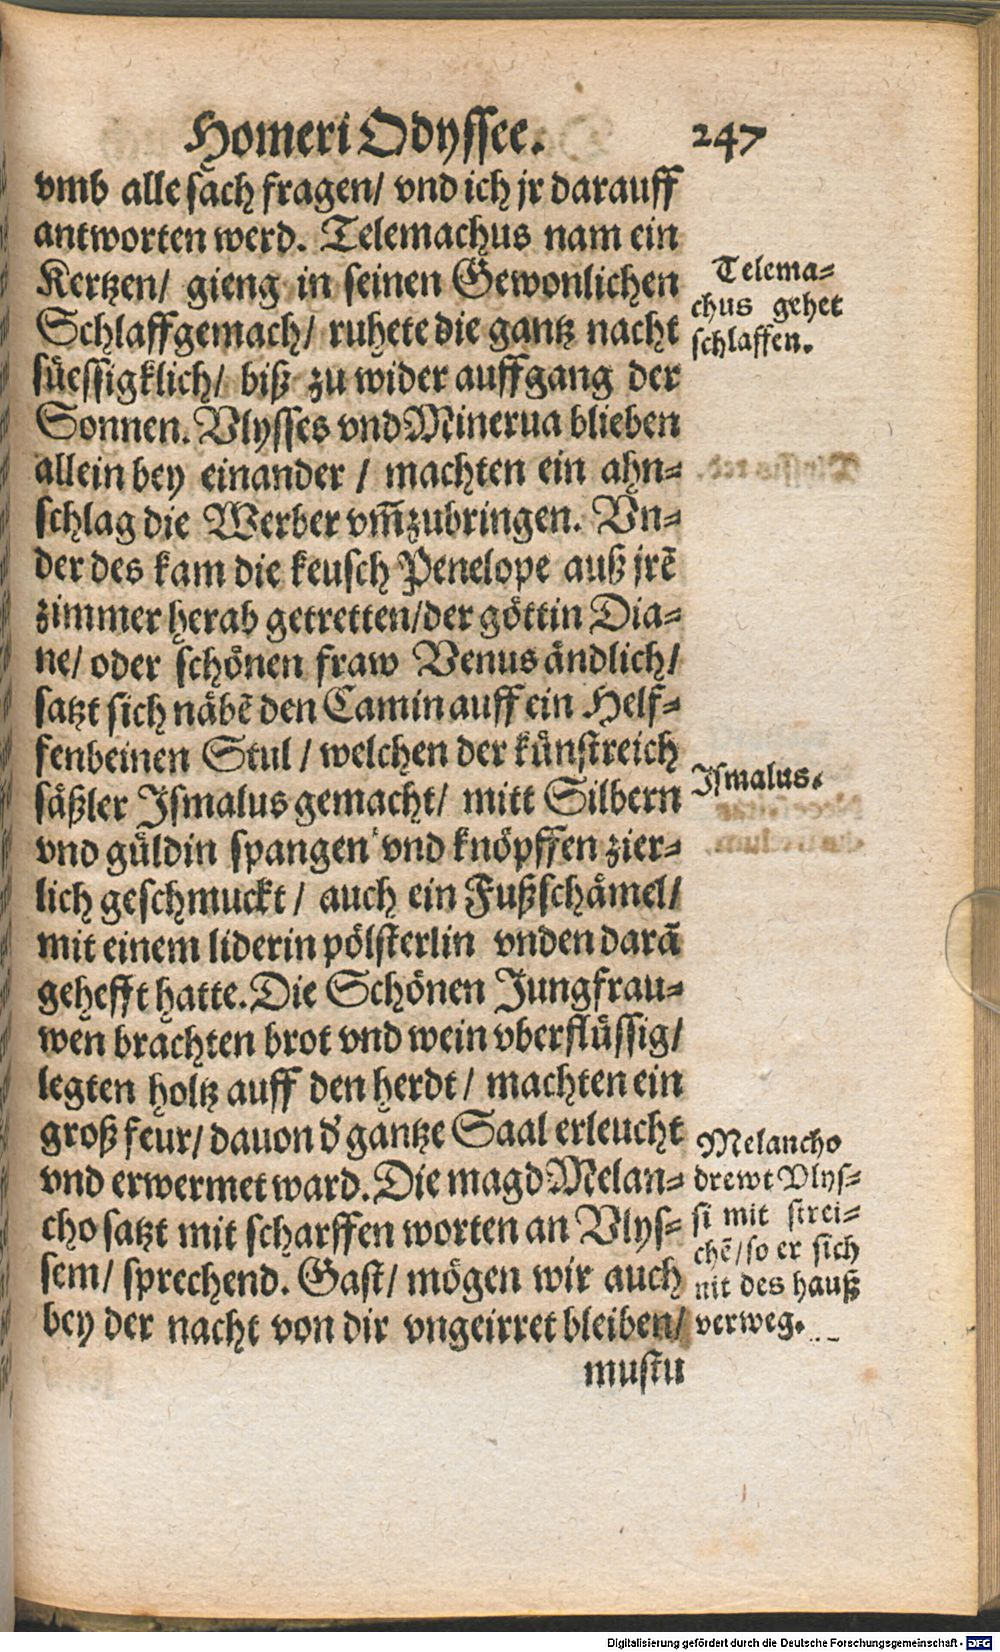 Homeri Odyssee. 247
vmb alle sach fragen/ vnd ich jr darauff
antworten werd. Telemachus nam ein
Kertzen/ gieng in seinen Gewonlichen
Schlaffgemach/ ruhete die gantz nacht
süessigklich/ biß zu wider auffgang der
Sonnen. Vlysses vnd Minerua blieben
allein bey einander / machten ein ahn-
schlag die Werber vm̃zubringen. Vn-
der des kam die keusch Penelope auß jrẽ
zimmer herab getretten/der göttin Dia-
ne/ oder schönen fraw Venus åndlich/
satzt sich nåbẽ den Camin auff ein Helf-
fenbeinen Stul / welchen der künstreich
såßler Ismalus gemacht/ mitt Silbern
vnd güldin spangen vnd knöpffen zier-
lich geschmuckt / auch ein Fußschåmel/
mit einem liderin pölsterlin vnden darã
gehefft hatte. Die Schönen Jungfrau-
wen brachten brot vnd wein vberflüssig/
legten holtz auff den herdt / machten ein
groß feur/ dauon d' gantze Saal erleucht
vnd erwermet ward. Die magd Melan-
cho satzt mit scharffen worten an Vlys-
sem/ sprechend. Gast/ mögen wir auch
bey der nacht von dir vngeirret bleiben/
mustu
Telema-
chus gehet
schlaffen.
Ismalus.
Melancho
drewt Vlys-
si mit strei-
chẽ/so er sich
nit des hauß
verweg.
Digitalisierung gefördert durch die Deutsche Forschungsgemeinschaft - DFG